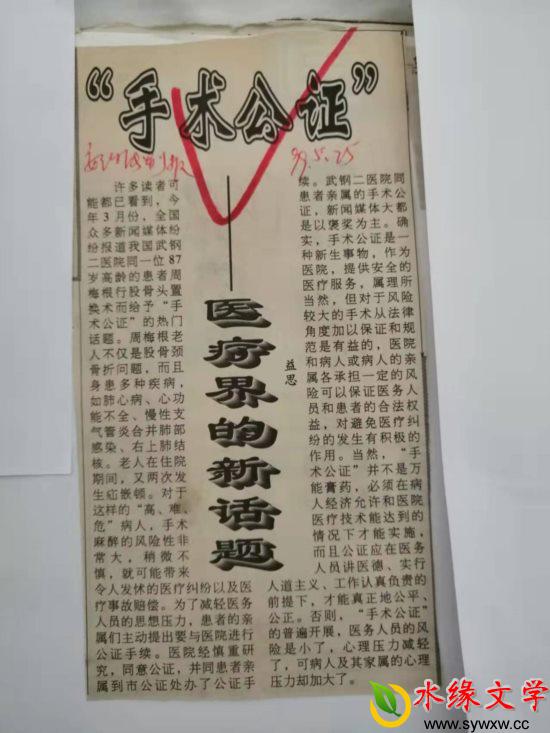 “手术公证”
99.5.25
许多读者可
能都已看到，今
年3月份，全国
众多新闻媒体纷
纷报道我国武钢
二医院同一位87
岁高龄的患者周
梅根行股骨头置
换术而给予“手
术公证”的热门
话题。周梅根老
人不仅是股骨颈
骨折问题，而且
身患多种疾病，
如肺心病、心功
能不全、慢性支
气管炎合并肺部
感染、右上肺结
核。老人在住院
期间，又两次发
生疝嵌顿。对于
这样的“高、难、
危”病人，手术
麻醉的风险性非
常大，稍微不
慎，就可能带来
令人发怵的医疗纠纷以及医
疗事故赔偿。为了减轻医务
人员的思想压力，患者的亲
属们主动提出要与医院进行
公证手续。医院经慎重研
究，同意公证，并同患者亲
属到市公证处办了公证手
——医疗界的新话题
益思
续。武钢二医院同
患者亲属的手术公
证，新闻媒体大都
是以褒奖为主。确
实，手术公证是一
种新生事物，作为
医院，提供安全的
医疗服务，属理所
当然，但对于风险
较大的手术从法律
角度加以保证和规
范是有益的，医院
和病人或病人的亲
属各承担一定的风
险可以保证医务人
员和患者的合法权
益，对避免医疗纠
纷的发生有积极的
作用。当然，“手
术公证”并不是万
能膏药，必须在病
人经济允许和医院
医疗技术能达到的
情况下才能实施，
而且公证应在医务
人员讲医德、实行
人道主义、工作认真负责的
前提下，才能真正地公平、
公正。否则，“手术公证”
的普遍开展，医务人员的风
险是小了，心理压力减轻
了，可病人及其家属的心理
压力却加大了。
水缘文学
www.sywxw.cc